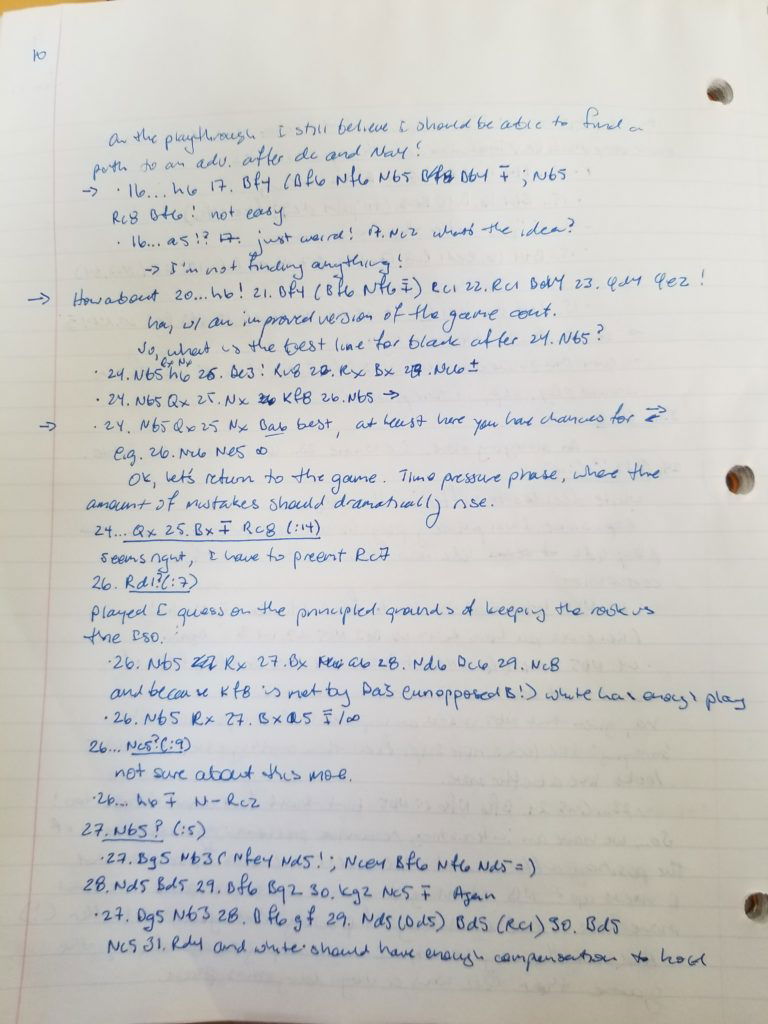 10
On the playthrough: I still believe I should be able to find a
path to an adv. after dc and Na4!
→ · 16... h6 17. Bf4 (Bf6 Nf6 Nb5 Bb4 ∓ ; Nb5
Rc8 Bf6! not easy.
· 16... a5!? 17. just weird! 17. Nc2 what's the idea?
→ I'm not finding anything!
→ How about 20...h6! 21. Bf4 (Bf6 Nf6 ∓) Rc1 22. Rc1 Bd4 23. Qd4 Qe2!
ha, w/ an improved version of the game cont.
So, what is the best line for black after 24. Nb5?
· 24. Nb5 Qx Nx h6 26. Be3! Rc8 27. Rx Bx 28. Nc6 ±
· 24. Nb5 Qx 25. Nx Kf8 26. Nb5 →
→ · 24. Nb5 Qx 25 Nx Ba6 best, at least here you have chances for
e.g. 26. Nc6 Ne5 ∞
OK, let's return to the game. Time pressure phase, where the
amount of mistakes should dramatically rise.
24... Qx 25. Bx ∓ Rc8 (:14)
Seems right, I have to prevent Rc7
26. Rd1?(:7)
Played I guess on the principled grounds of keeping the rook vs
the Iso.
· 26. Nb5 Rx 27. Bx a6 28. Nd6 Bc6 29. Nc8
and because Kf8 is met by Ba3 (unopposed B!) white has enough play
· 26. Nb5 Rx 27. Bx a5 ∓/∞
26... Nc5?(:9)
not sure about this move.
· 26... h6 ∓ N-Rc2
27. Nb5? (:5)
· 27. Bg5 Nb3 (Nfe4 Nd5!; Nce4 Bf6 Nf6 Nd5=)
28. Nd5 Bd5 29. Bf6 Bg2 30. Kg2 Nc5 ∓ Again
· 27. Bg5 Nb3 28. Bf6 gf 29. Nd5 (Bd5) Bd5 (Rc1) 30. Bd5
Nc5 31. Rd4 and white should have enough compensation to hold